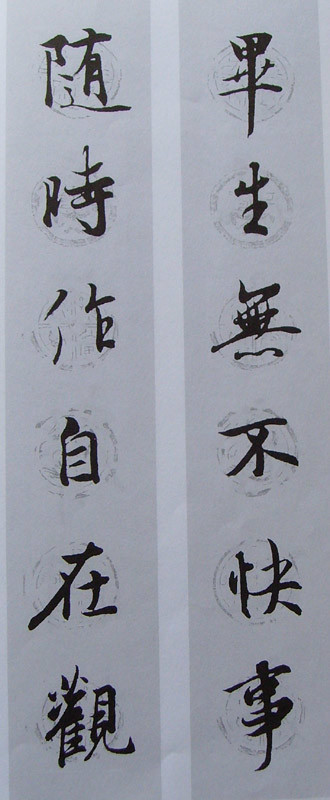 畢生無不快事
随時作自在觀